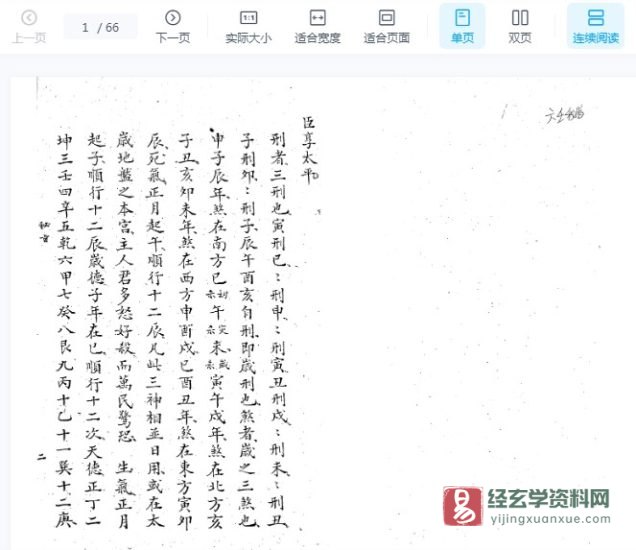 上一页
1 / 66
下一页
实际大小
适合宽度
适合页面
单页
双页
连续阅读
臣享太平
刑者三刑也寅刑巳:刑申:刑寅丑刑戌:刑未:刑丑
子刑卯:刑子辰午酉亥自刑即歲刑也煞者歲之三煞也
申子辰年煞在南方巳 午 未 寅午戌年煞在北方亥
子丑亥卯未年煞在西方申酉戌巳酉丑年煞在東方寅卯
辰死氣正月起午順行十二辰凡此三神相並日用或在太
歲地盤之本宮主人君多怒好殺而萬民驚恐 生氣正月
起子順行十二辰歲德子年在巳順行十二次天德正丁二
坤三壬四辛五乾六甲七癸八艮九丙十乙十一巽十二庚
二
经玄学资料网
yijingxuanxue.com